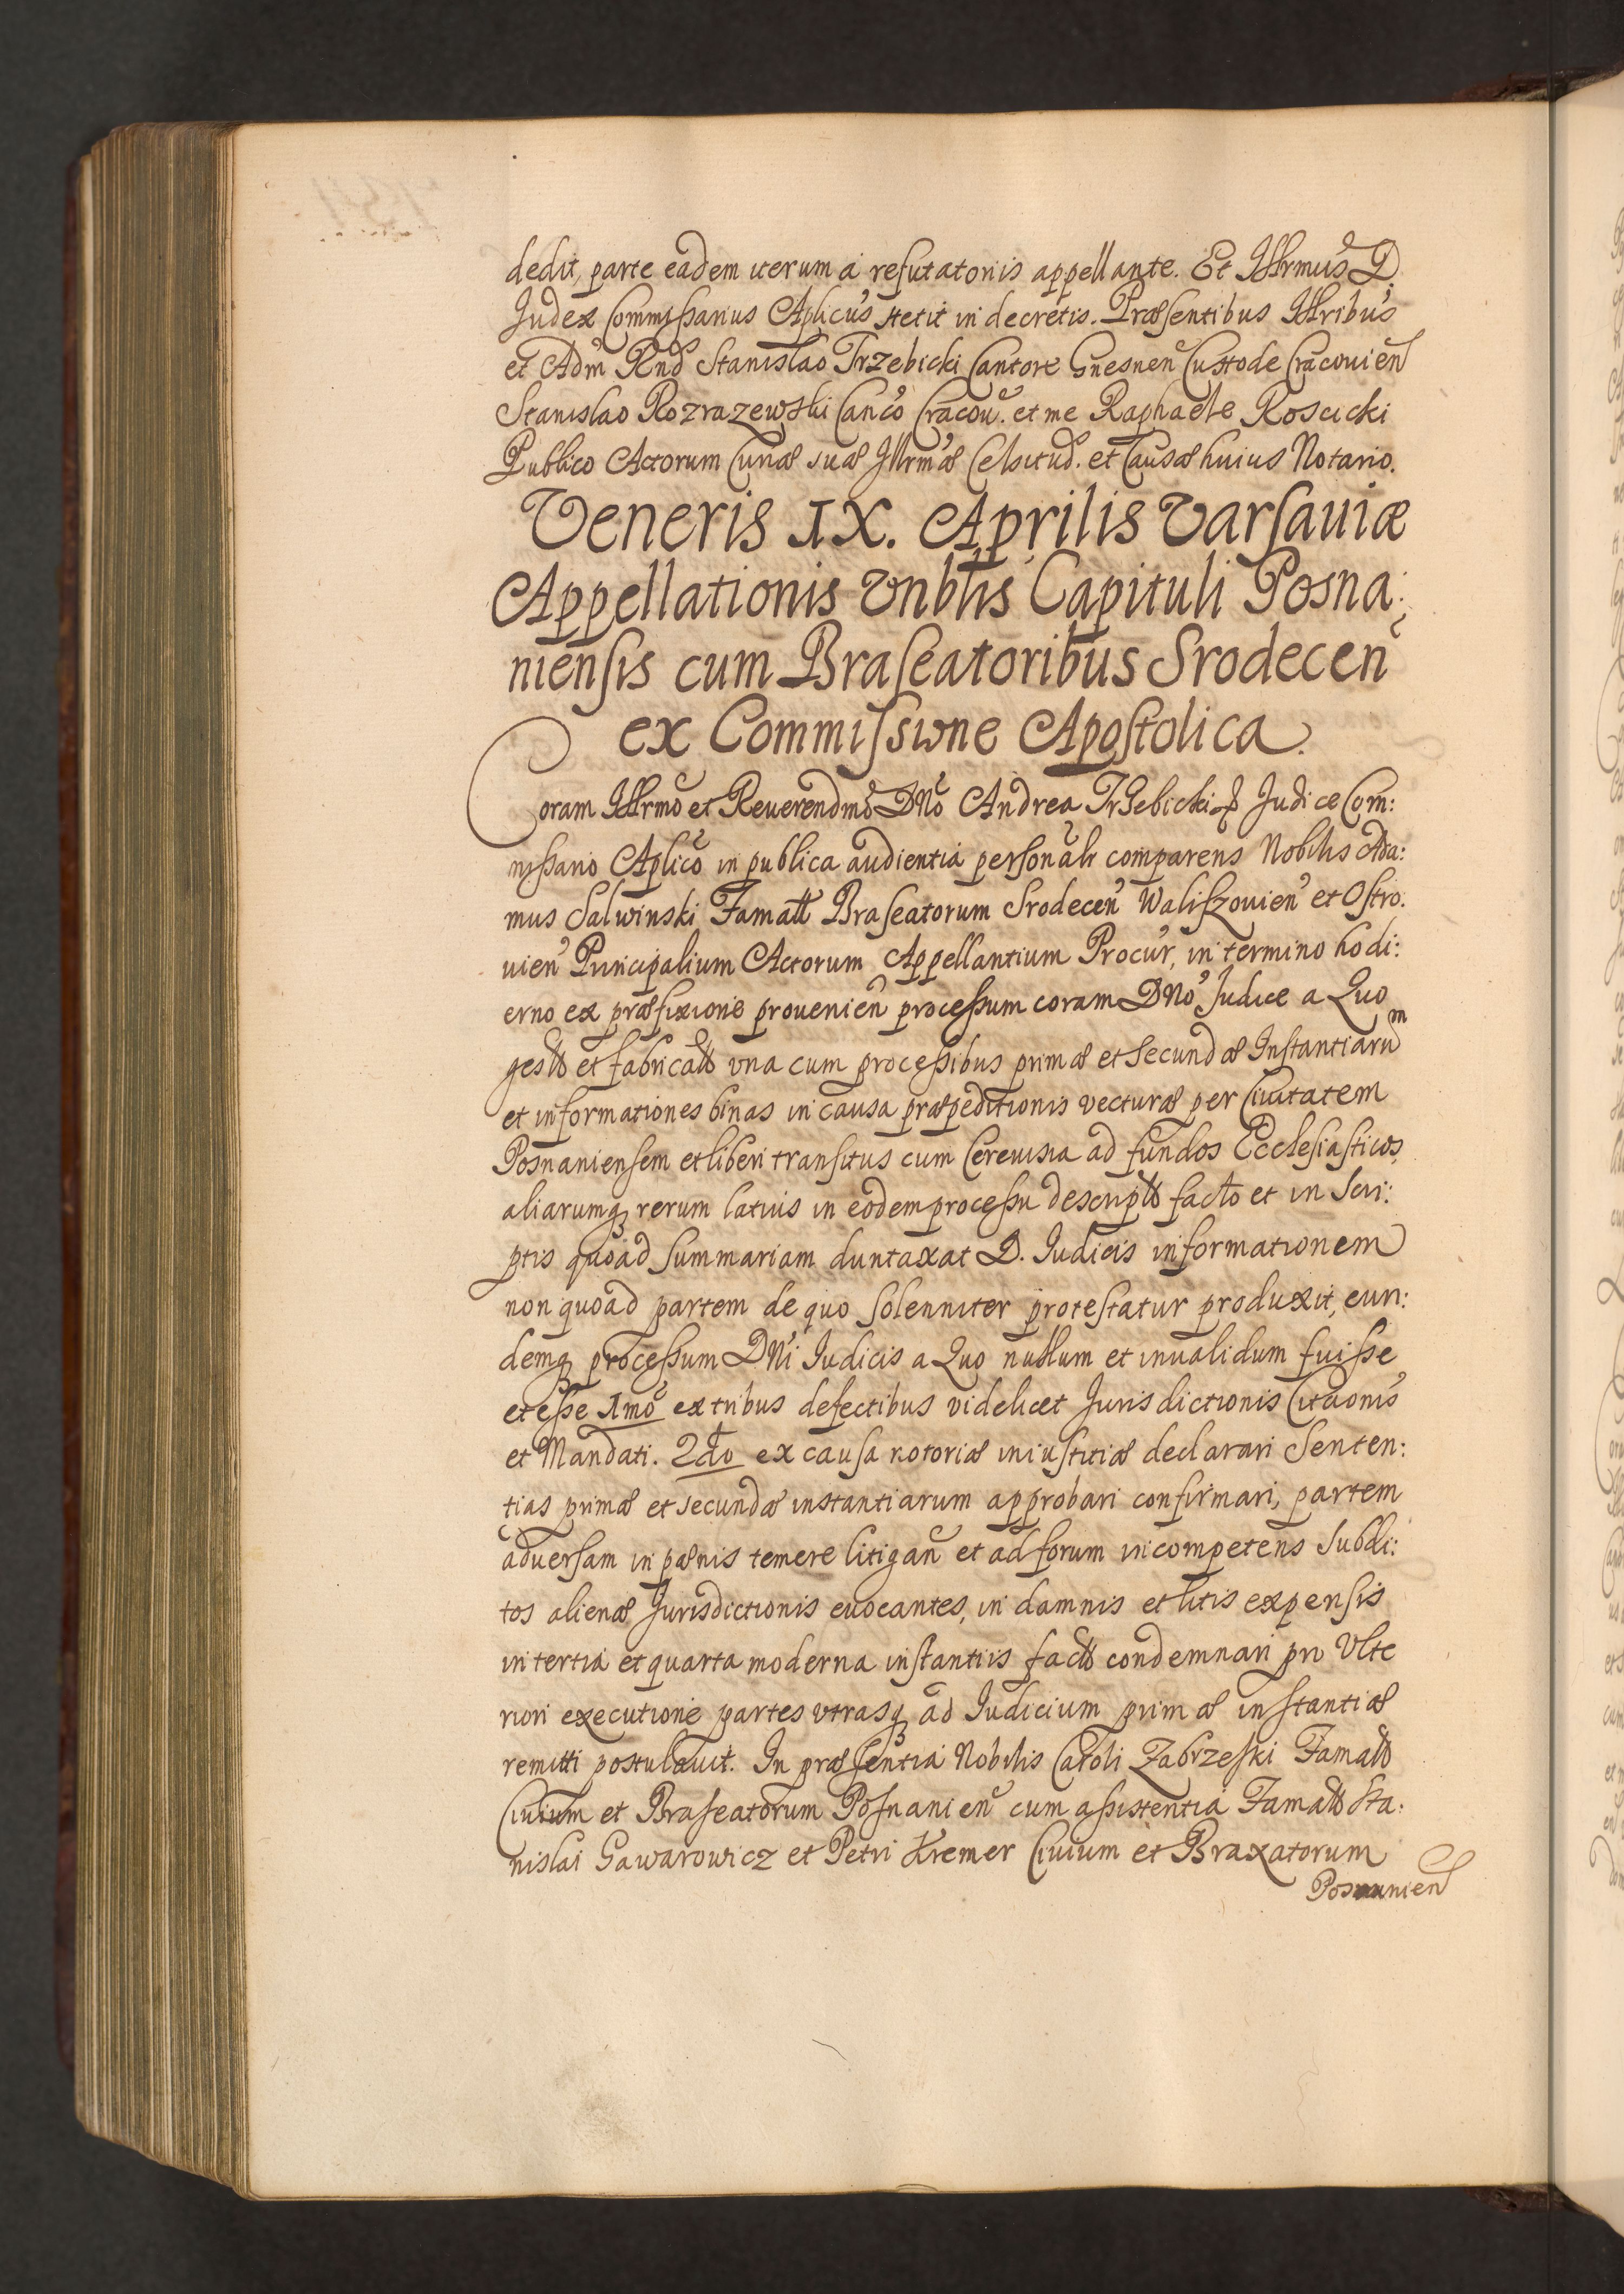 dedit, parte eadem iterum à refutatoriis appellante. Et Illrmus D.
Judex Commissarius Aplicus stetit in decretis. Præsentibus Illribus
et Adm Rnd Stanislao Trzebicki Cantore Gnesnen Custode Cracouien
Stanislao Rozrazewski Canco Cracou. et me Raphaele Roscicki
Publico Actorum Curiæ suæ Illrmæ Celsitud. et Causæ huius Notario.
Veneris IX. Aprilis Varsauiæ
Appellationis Vnblis Capituli Posna:
niensis cum Braseatoribus Srodecen
ex Commissione Apostolica.
Coram Illrmo et Reuerendmo DNo Andrea Trzebicki Judice Com:
missario Aplico in publica audientia personalr comparens Nobilis Ada:
mus Salwinski Famatt Braseatorum Srodecen Waliszouien et Ostro.
uien Principalium Actorum Appellantium Procur, in termino hodi:
erno ex præfixione prouenien processum coram DNo Judice a Quo
gestt et fabricatt vna cum processibus primæ et secundæ Instantiarum
et informationes binas in causa præpeditionis vecturæ per Ciuitatem
Posnaniensem et liberi transitus cum Cereuisia ad fundos Ecclesiasticos,
aliarumq rerum latius in eodem processu descriptt facto et in Scri:
ptis quoad summariam duntaxat D. Iudicis informationem
non quoad partem de quo solenniter protestatur produxit, eun:
demq processum DNi Iudicis a Quo nullum et inualidum fuisse
et esse 1mo ex tribus defectibus videlicet Jurisdictionis Citaonis
et Mandati. 2do ex causa notoriæ iniustitiæ declarari Senten:
tias primæ et secundæ instantiarum approbari confirmari, partem
aduersam in pænis temere litigan et ad forum incompetens Subdi:
tos alienæ Jurisdictionis euocantes, in damnis et litis expensis
in tertia et quarta moderna instantiis factt condemnari pro Vlte
riori executione partes vtrasq ad Iudicium primæ instantiæ
remitti postulauit. In præsentia Nobilis Caroli Zabrzeski Famatt
Ciuium et Braseatorum Posnanien cum assistentia Famatt Sta:
nislai Gawarowicz et Petri Kremer Ciuium et Braxatorum
Posnanien